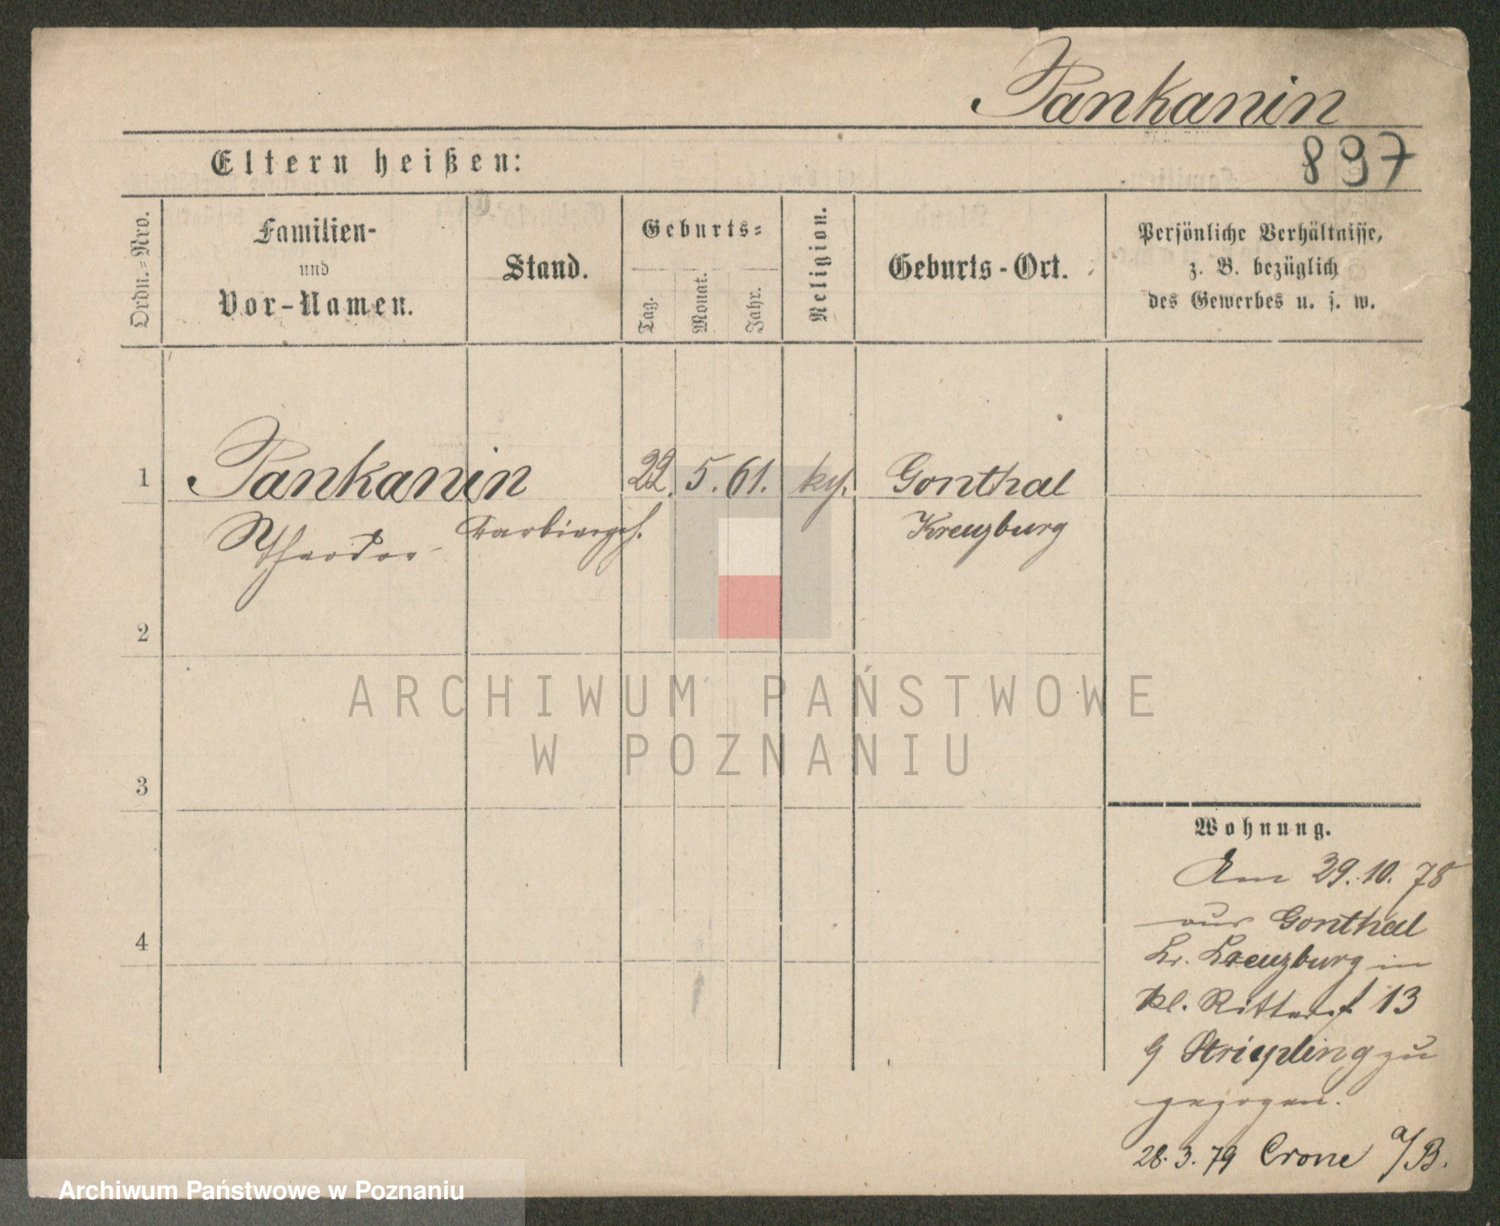 Pankanin
897
Eltern heißen:
Ordn.-Nro.
Familien-
und
Vor-Namen.
Stand.
Geburts-
Tag.
Monat.
Jahr.
Religion.
Geburts-Ort.
Persönliche Verhältnisse,
z. B. bezüglich
des Gewerbes u. s. w.
1 Pankanin 22. 5. 61. Gonthal
Theodor Barbiergeh. Kreuzburg
2
3
4
Wohnung.
Am 29. 10. 78
aus Gonthal
Kr. Kreuzburg in
kl. Ritterst 13
zu
gezogen.
28. 3. 79 Crone a/B.
ARCHIWUM PAŃSTWOWE
W POZNANIU
Archiwum Państwowe w Poznaniu